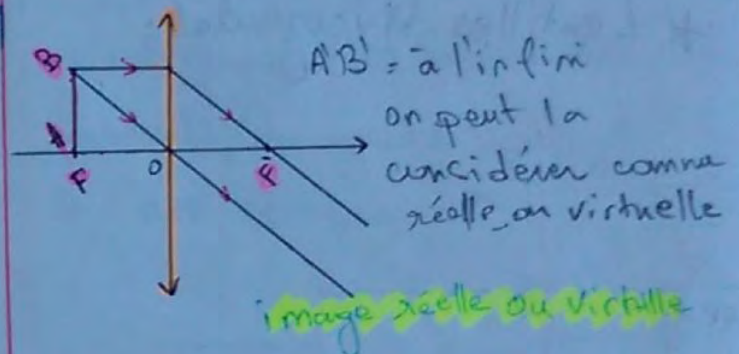 A'B' = à l'infini
on peut la
concidérer comme
réelle ou virtuelle
B
A
F
O
F'
image réelle ou virtulle